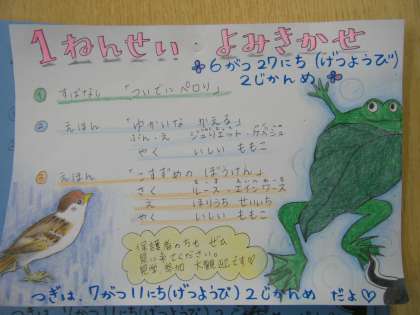 1ねんせい よみきかせ
6がつ27にち(げつようび)
2じかんめ
① すばなし 「ついでにペロリ」
② えほん 「ゆかいな かえる」
ぶん・え ジュリエット・ケペシュ
やく いしい ももこ
③ えほん 「こすずめの ぼうけん」
さく ルース・エインワース
え ほりうち せいいち
やく いしい ももこ
保護者の方も ぜひ
見に来てください。
見学、参加 大歓迎です♡
つぎは、7がつ11にち(げつようび)2じかんめ だよ♡